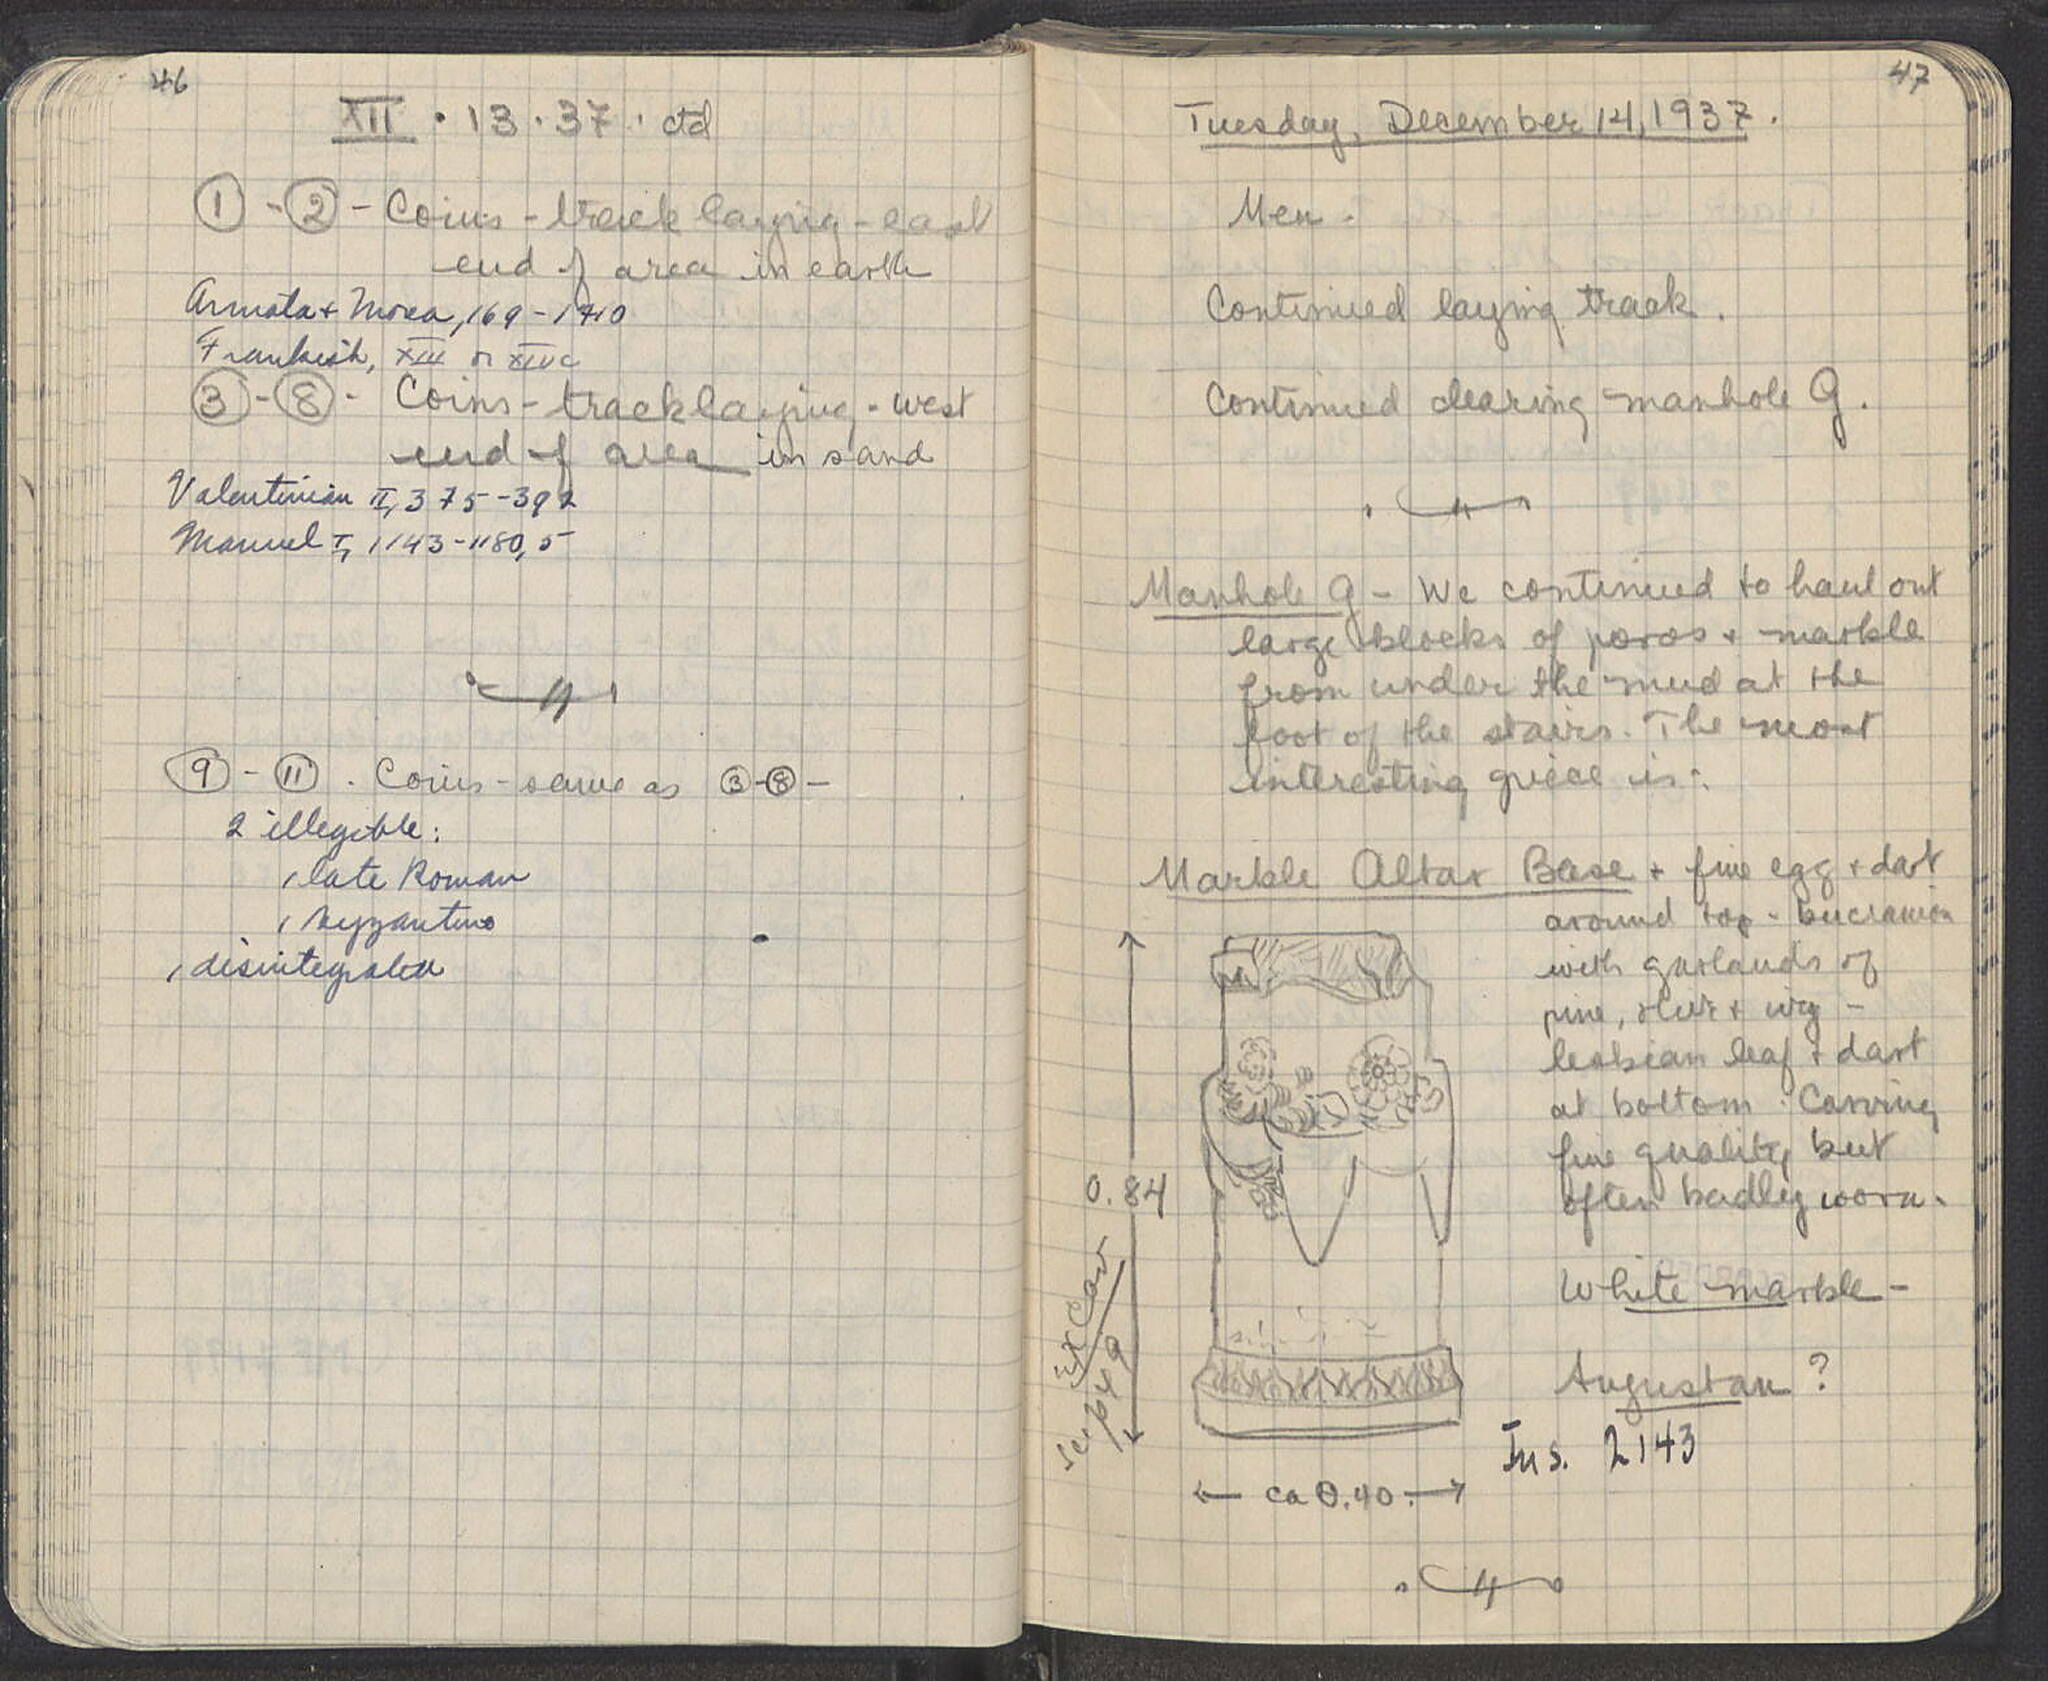 46
XII · 13 · 37 · ctd
① - ② - Coins - track laying - east
end of area in earth
Armata & Morea, 169 - 1710
Frankish, XIII or XIV c
③ - ⑧ - Coins - track laying - west
end of area in sand
Valentinian II, 375-392
Manuel I, 1143-1180, 5
⑨ - ⑪ . Coins - same as ③-⑧ -
2 illegible:
1 late Roman
1 Byzantine
1 disintegrated
47
Tuesday, December 14, 1937.
Men -
Continued laying track.
Continued clearing manhole G.
Manhole G - We continued to haul out
large blocks of poros + marble
from under the mud at the
foot of the stairs. The most
interesting piece is:
Marble Altar Base + fine egg + dart
around top - bucrania
with garlands of
pine, + ivy -
lesbian leaf + dart
at bottom. Carving
fine quality but
often badly worn.
White marble -
Augustan ?
Ins. 2143
0.84
ca 0.40